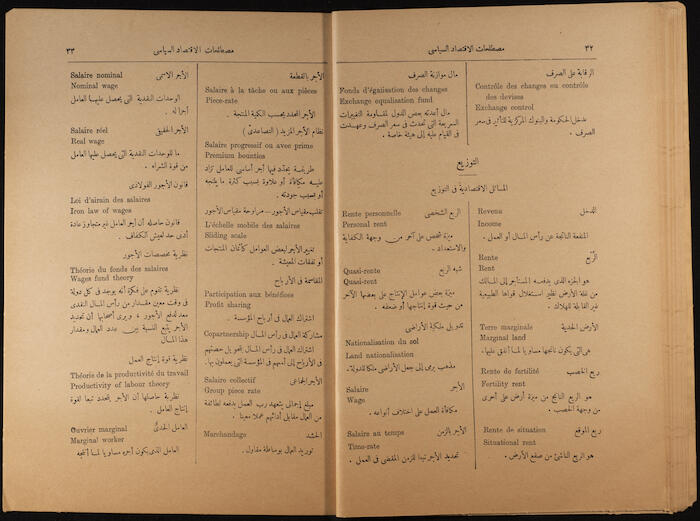 ٣٢
مصطلحات الاقتصاد السياسى
الرقابة على الصرف
Contrôle des changes ou contrôle
des devises
Exchange control
تدخل الحكومة والبنوك المركزية للتأثير فى سعر
الصرف .
مال موازنة الصرف
Fonds d'égalisation des changes
Exchange equalisation fund
مال أعدته بعض الدول لمقاومة التغييرات
السريعة التى تحدث فى سعر الصرف وعهدت
فى القيام عليه إلى هيئة خاصة .
التوزيع
المسائل الاقتصادية فى التوزيع
الدخل
Revenu
Income
المنفعة الناتجة عن رأس المال أو العمل .
الرّيع
Rente
Rent
هو الجزء الذى يدفعه المستأجر إلى المالك
من غلة الأرض نظير استغلال قواها الطبيعية
غير القابلة للهلاك .
الأرض الحدية
Terre marginale
Marginal land
هى التى يكون ناتجها مساويا لما أنفق عليها .
ريع الخصب
Rente de fertilité
Fertility rent
هو الريع الناتج من ميزة أرض على أخرى
من وجهة الخصب .
ريع الموقع
Rente de situation
Situational rent
هو الريع الناشئ من صقع الأرض .
الريع الشخصى
Rente personnelle
Personal rent
ميزة شخص على آخر من وجهة الكفاية
والاستعداد .
شبه الريع
Quasi-rente
Quasi-rent
ميزة بعض عوامل الإنتاج على بعضها الآخر
من حيث قوة إنتاجها أو ضعفه .
تدويل ملكية الأراضى
Nationalisation du sol
Land nationalisation
مذهب يرمى إلى جعل الأراضى ملكا للدولة .
الأجر
Salaire
Wage
مكافأة العمل على اختلاف أنواعه .
الأجر بالزمن
Salaire au temps
Time-rate
تحديد الأجر تبعا للزمن المقضى فى العمل .
مصطلحات الاقتصاد السياسى
٣٣
الأجر بالقطعة
Salaire à la tâche ou aux pièces
Piece-rate
الأجر المحدد بحسب الكمية المنتجة .
نظام الأجر المزيد ( التصاعدى )
Salaire progressif ou avec prime
Premium bounties
طريقة يحدّد فيها أجر أساسى للعامل تزاد
عليه مكافأة أو علاوة بسبب كثرة ما ينتجه
أو بحسب جودته .
تقلب مقياس الأجور – مراوحة مقياس الأجور
L'échelle mobile des salaires
Sliding scale
تغيير الأجر لبعض العوامل كأثمان المنتجات
أو نفقات المعيشة .
المقاسمة فى الأرباح
Participation aux bénéfices
Profit sharing
اشتراك العمال فى أرباح المؤسسة .
مشاركة العمال فى رأس المال Copartnership
اشتراك العمال فى رأس المال بتحويل حصتهم
فى الأرباح إلى أسهم فى المؤسسة التى يعملون بها .
الأجر الجماعى
Salaire collectif
Group piece rate
مبلغ إجمالى يتعهد رب العمل بدفعه لطائفة
من العمال مقابل أدائهم عملا معينا .
الحشد
Marchandage
توريد العمال بوساطة مقاول .
الأجر الاسمى
Salaire nominal
Nominal wage
الوحدات النقدية التى يحصل عليها العامل
أجرا له .
الأجر الحقيقى
Salaire réel
Real wage
ما للوحدات النقدية التى يحصل عليها العامل
من قوة الشراء .
قانون الأجور الفولاذى
Loi d'airain des salaires
Iron law of wages
قانون حاصله أن أجر العامل غير متجاوز عادة
أدنى حد لعيش الكفاف .
نظرية مخصصات الأجور
Théorie du fonds des salaires
Wages fund theory
نظرية تقوم على فكرة أنه يوجد فى كل دولة
فى وقت معين مقدار من رأس المال النقدى
معد لدفع الأجور ، ويرى أصحابها أن تحديد
الأجر يتبع النسبة بين عدد العمال ومقدار
هذا المال
نظرية قوة إنتاج العمل
Théorie de la productivité du travail
Productivity of labour theory
نظرية حاصلها أن الأجر يتحدد تبعا لقوة
إنتاج العامل .
العامل الحدىّ
Ouvrier marginal
Marginal worker
العامل الذى يكون أجره مساويا لما أنتجه